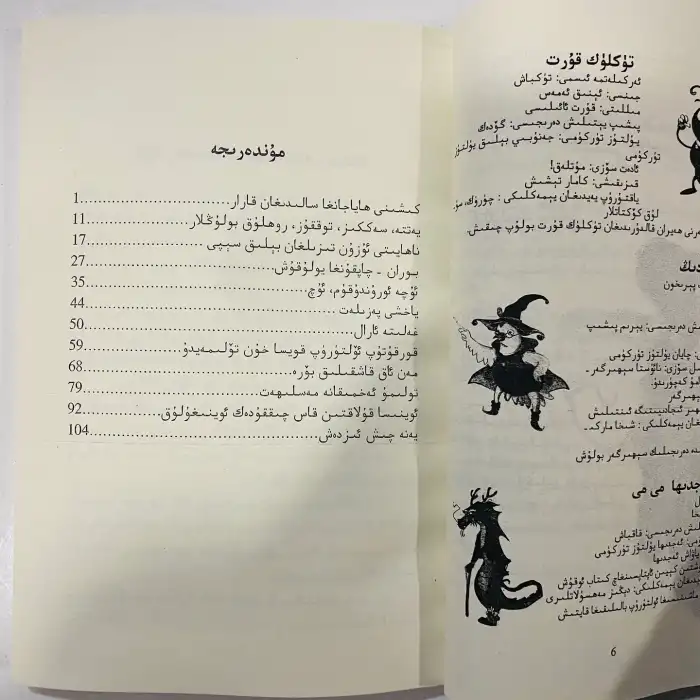 مۇندەرىجە
كىشىنى ھاياجانغا سالىدىغان قارار............1
يەتتە، سەككىز، توققۇز، روھلۇق بولۇڭلار............11
ناھايىتى ئۇزۇن تىزىلغان بېلىق سېپى............17
بوران - چاپقۇنغا يولۇقۇش............27
ئۈچە ئورۇندۇقۇم، ئۈچ............35
ياخشى پەزىلەت............44
غەلىتە ئارال............50
قورقۇتۇپ ئۆلتۈرۈپ قويسا خۇن تۆلىمەيدۇ............59
مەن ئاق قاشقىلىق بۆرە............68
تولىمۇ ئەخمىقانە مەسلىھەت............79
ئوينىسا قۇلاقتىن قاس چىققۇدەك ئوينىغۇلۇق............92
يەنە چىش ئىزدەش............104
تۈكلۈك قۇرت
ئەركىلەتمە ئىسمى: تۈكباش
جىنسى: ئېنىق ئەمەس
مىللىتى: قۇرت ئائىلىسى
پىشىپ يېتىلىش دەرىجىسى: گۆدەك
يۇلتۇز تۈركۈمى: جەنۇبىي بېلىق يۇلتۇز
تۈركۈمى
ئادەت سۆزى: مۇتلەق!
قىزىقىشى: كامار تېشىش
ياقتۇرۇپ يەيدىغان يېمەكلىكى: چۈرۈك، سۈ
لۈق كۆكتاتلار
ەرنى ھەيران قالدۇرىدىغان تۈكلۈك قۇرت بولۇپ چىقىش.
دىڭ
پىرىخون
ش دەرىجىسى: يېرىم پىشىپ
: چايان يۇلتۇز تۈركۈمى
سۆزى: ئائۇستا سېھىرگەر -
لۇ كەپۇرىۇز
سېھىرگەر
ھىز ئىجادىيىتىگە ئىنتىلىش
ىغان يېمەكلىكى: شىخا ماركى-
دە دەرىجىلىك سېھىرگەر بولۇش
جدىھا مى مى
ىلىش دەرىجىسى: قاقباش
ى: ئەجدىھا يۇلتۇز تۈركۈمى
ياۋاش ئەجدىھا
شتىن كېيىن ئاپتاپسىنغاچ كىتاب ئوقۇش
ىغان يېمەكلىكى: دېڭىز مەھسۇلاتلىرى
ئولتۇرۇپ بالىلىقىغا قايتىش
6